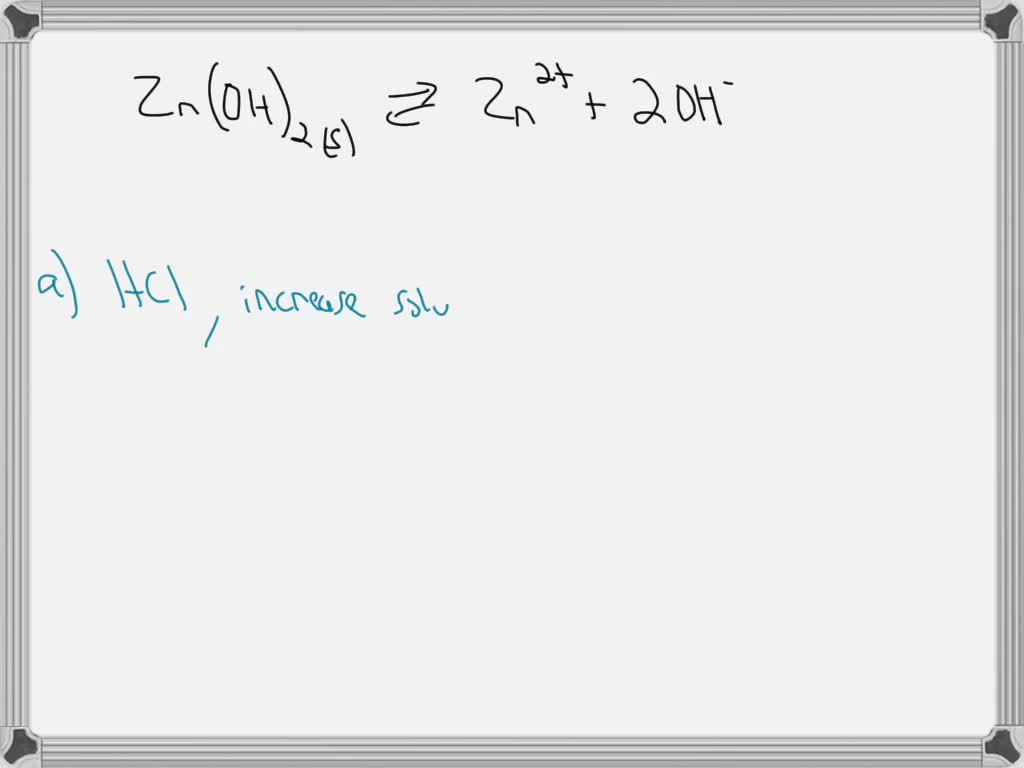 Zn(OH)₂(s) ⇌ Zn²⁺ + 2OH⁻
a) HCl, increase solu